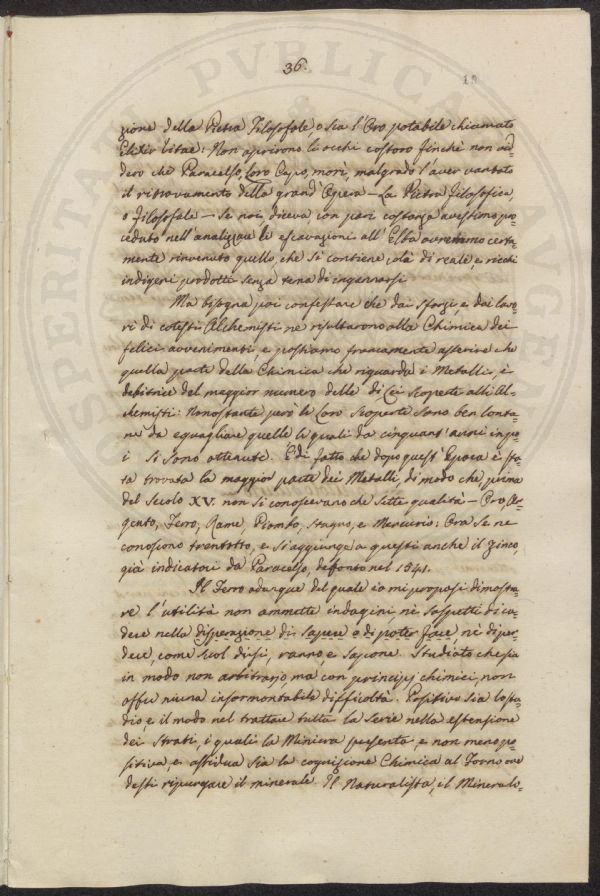 36.
18
zione della Pietra Filosofale, o sia l'Oro potabile chiamato
Elixir Vitae: Non aprirono li occhi costoro finchè non vid=
dero che Paracelso, loro Capo, morì, malgrado l'aver vantato
il ritrovamento della grand'Opera — La Pietra filosofica,
o filosofale — Se noi, diceva con pari costanza avessimo pro=
ceduto nell'analizzare le escavazioni all'Elba avremmo certa=
mente rinvenuto quello, che si contiene colà di reale, e ricchi
indigeni prodotti senza tema di ingannarsi
Ma bisogna poi confessare che dai sforzi, e dai lavo=
ri di cotesti Alchemisti ne risultarono alla Chimica dei
felici avvenimenti, e possiamo francamente asserire che
quella parte della Chimica che riguarda i Metalli, è
debitrice del maggior numero delle di Lei scoperte alli Al=
chemisti: Nonostante però le Loro scoperte sono ben lonta=
ne da eguagliare quelle le quali da cinquant'anni in po=
i si sono ottenute. È di fatto che dopo quest'Epoca è sta=
ta trovata la maggior parte dei Metalli, di modo che prima
del Secolo XV. non si conoscevano che sette qualità — Oro, Ar=
gento, Ferro, Rame, Piombo, Stagno, e Mercurio: Ora se ne
conoscono trentotto, e si aggiunge a questi anche il Zinco,
già indicatoci da Paracelso, deffonto nel 1541.
Il Ferro adunque del quale io mi proposi dimostra=
re l'utilità non ammette indagini, nè sospetti di ca=
dere nella disperazione di sapere o di poter fare, nè di per=
dere, come suol dirsi, ranno, e sapone. Studiato che sia
in modo non arbitrario, ma con principj chimici, non
offre niuna insormontabile difficoltà. Positivo sia lo stu=
dio, e il modo nel trattare tutta la Serie nella estensione
dei Strati, i quali la Miniera presenta, e non meno po=
sitiva, e assidua sia la cognizione Chimica al Forno ove
dessi ripurgare il minerale. Il Naturalista, il Mineralo=
ASPERITATI PVBLICAE AVGEN